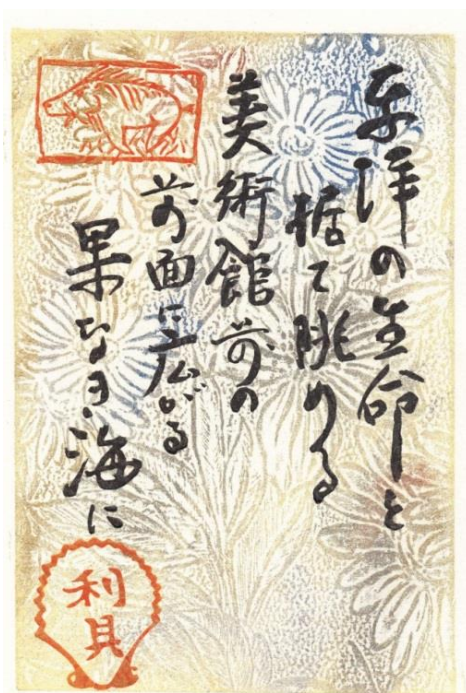 東洋の生命と
据て眺める
美術館前の
前面に広がる
果なき海に
利貝